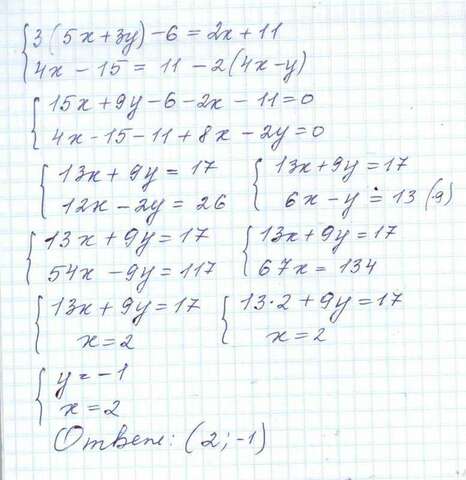 3(5x+3y)-6=2x+11
4x-15=11-2(4x-y)
15x+9y-6-2x-11=0
4x-15-11+8x-2y=0
13x+9y=17
12x-2y=26
13x+9y=17
6x-y=13 (9)
13x+9y=17
54x-9y=117
13x+9y=17
67x=134
13x+9y=17
x=2
13·2+9y=17
x=2
y=-1
x=2
Ответ: (2;-1)